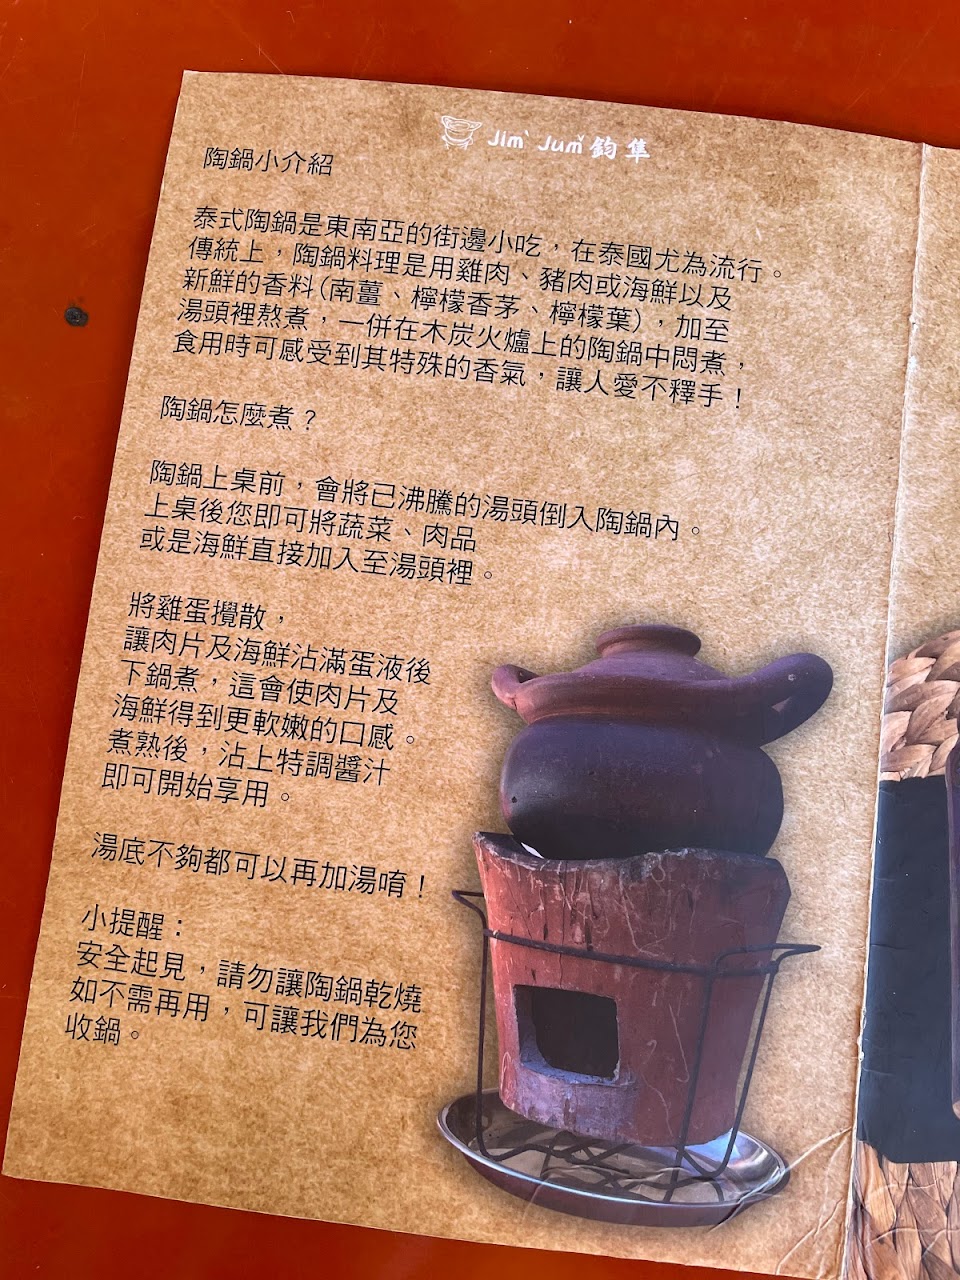 Jim Jum 鈞隼
陶鍋小介紹
泰式陶鍋是東南亞的街邊小吃，在泰國尤為流行。
傳統上，陶鍋料理是用雞肉、豬肉或海鮮以及
新鮮的香料(南薑、檸檬香茅、檸檬葉)，加至
湯頭裡熬煮，一併在木炭火爐上的陶鍋中悶煮，
食用時可感受到其特殊的香氣，讓人愛不釋手！
陶鍋怎麼煮？
陶鍋上桌前，會將已沸騰的湯頭倒入陶鍋內。
上桌後您即可將蔬菜、肉品
或是海鮮直接加入至湯頭裡。
將雞蛋攪散，
讓肉片及海鮮沾滿蛋液後
下鍋煮，這會使肉片及
海鮮得到更軟嫩的口感。
煮熟後，沾上特調醬汁
即可開始享用。
湯底不夠都可以再加湯唷！
小提醒：
安全起見，請勿讓陶鍋乾燒
如不需再用，可讓我們為您
收鍋。